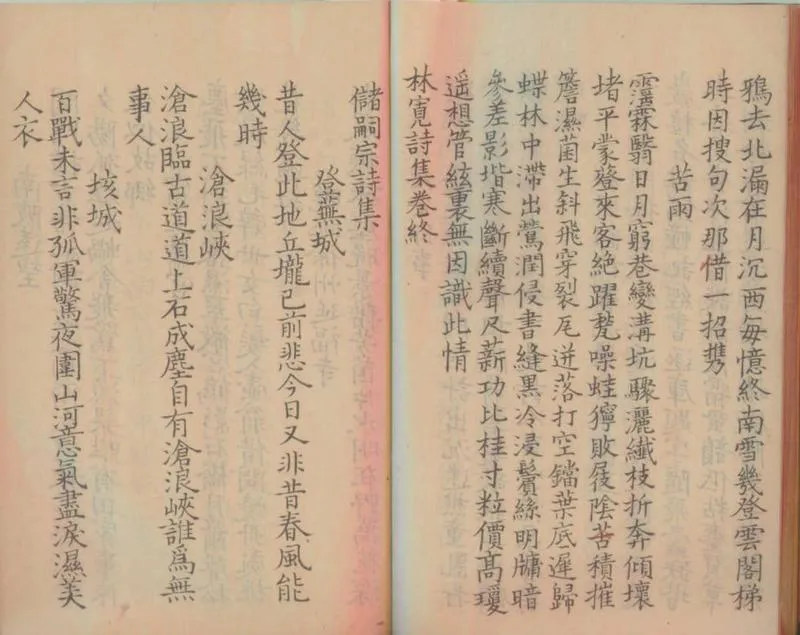 鴉去北漏在月沉西每憶終南雪幾登雲閣梯
時因搜句次那借一招携
苦雨
霪霖翳日月窮巷變溝坑驟灑纖枝折奔傾壞
堵平蒙簦來客絶躍甃噪蛙獰敗屐陰苔積摧
簷濕菌生斜飛穿裂瓦迸落打空鐺葉底遲歸
蝶林中滯出鶯潤侵書縫黑冷浸鬢絲明牗暗
參差影堦寒斷續聲尺薪功比桂寸粒價高瓊
遥想管絃裏無因識此情
林寬詩集卷終
儲嗣宗詩集
登蕪城
昔人登此地丘壠已前悲今日又非昔春風能
幾時
滄浪峽
滄浪臨古道道上石成塵自有滄浪峽誰爲無
事人
垓城
百戰未言非孤軍驚夜圍山河意氣盡淚濕美
人衣